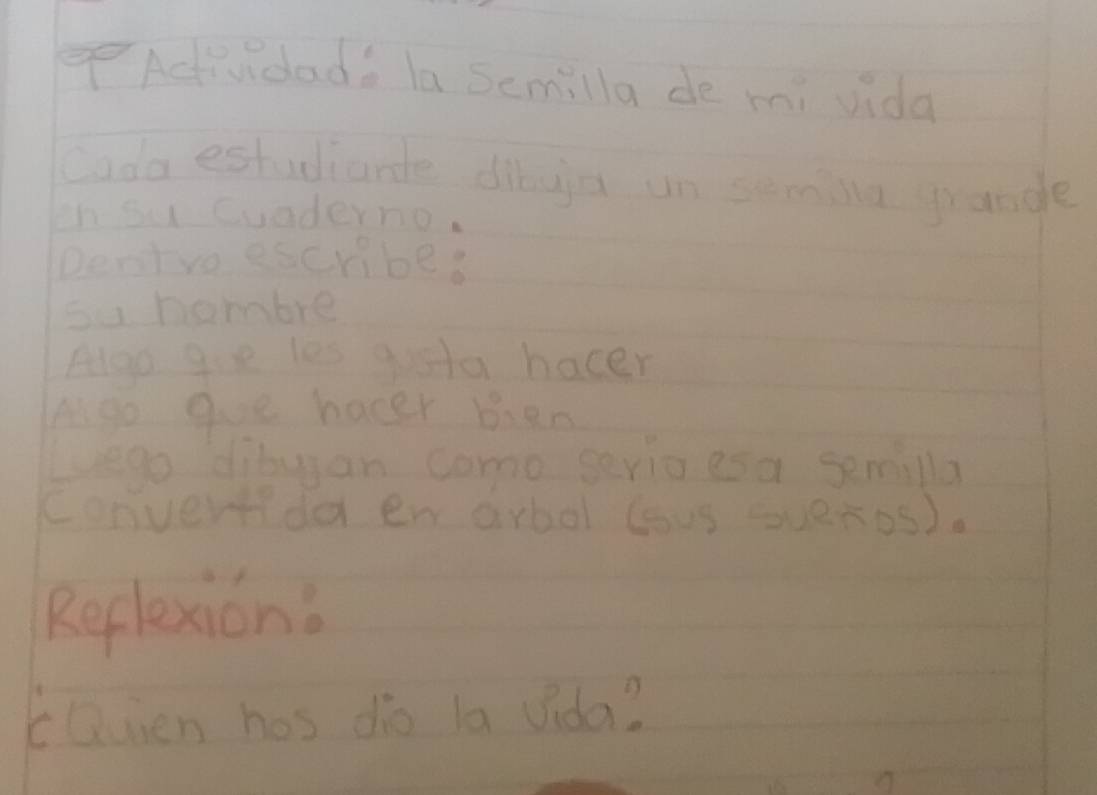 Actividad: la Semilla de mi vida
Cada estudiante dibuja un semilla grande
en su cuaderno.
Dentro escribe:
su nombre
Algo que les gusta hacer
Algo que hacer bien
Luego dibujan como seria esa semilla
Convertida en árbol (sus sueños).
Reflexión:
¿Quien nos dio la vida?